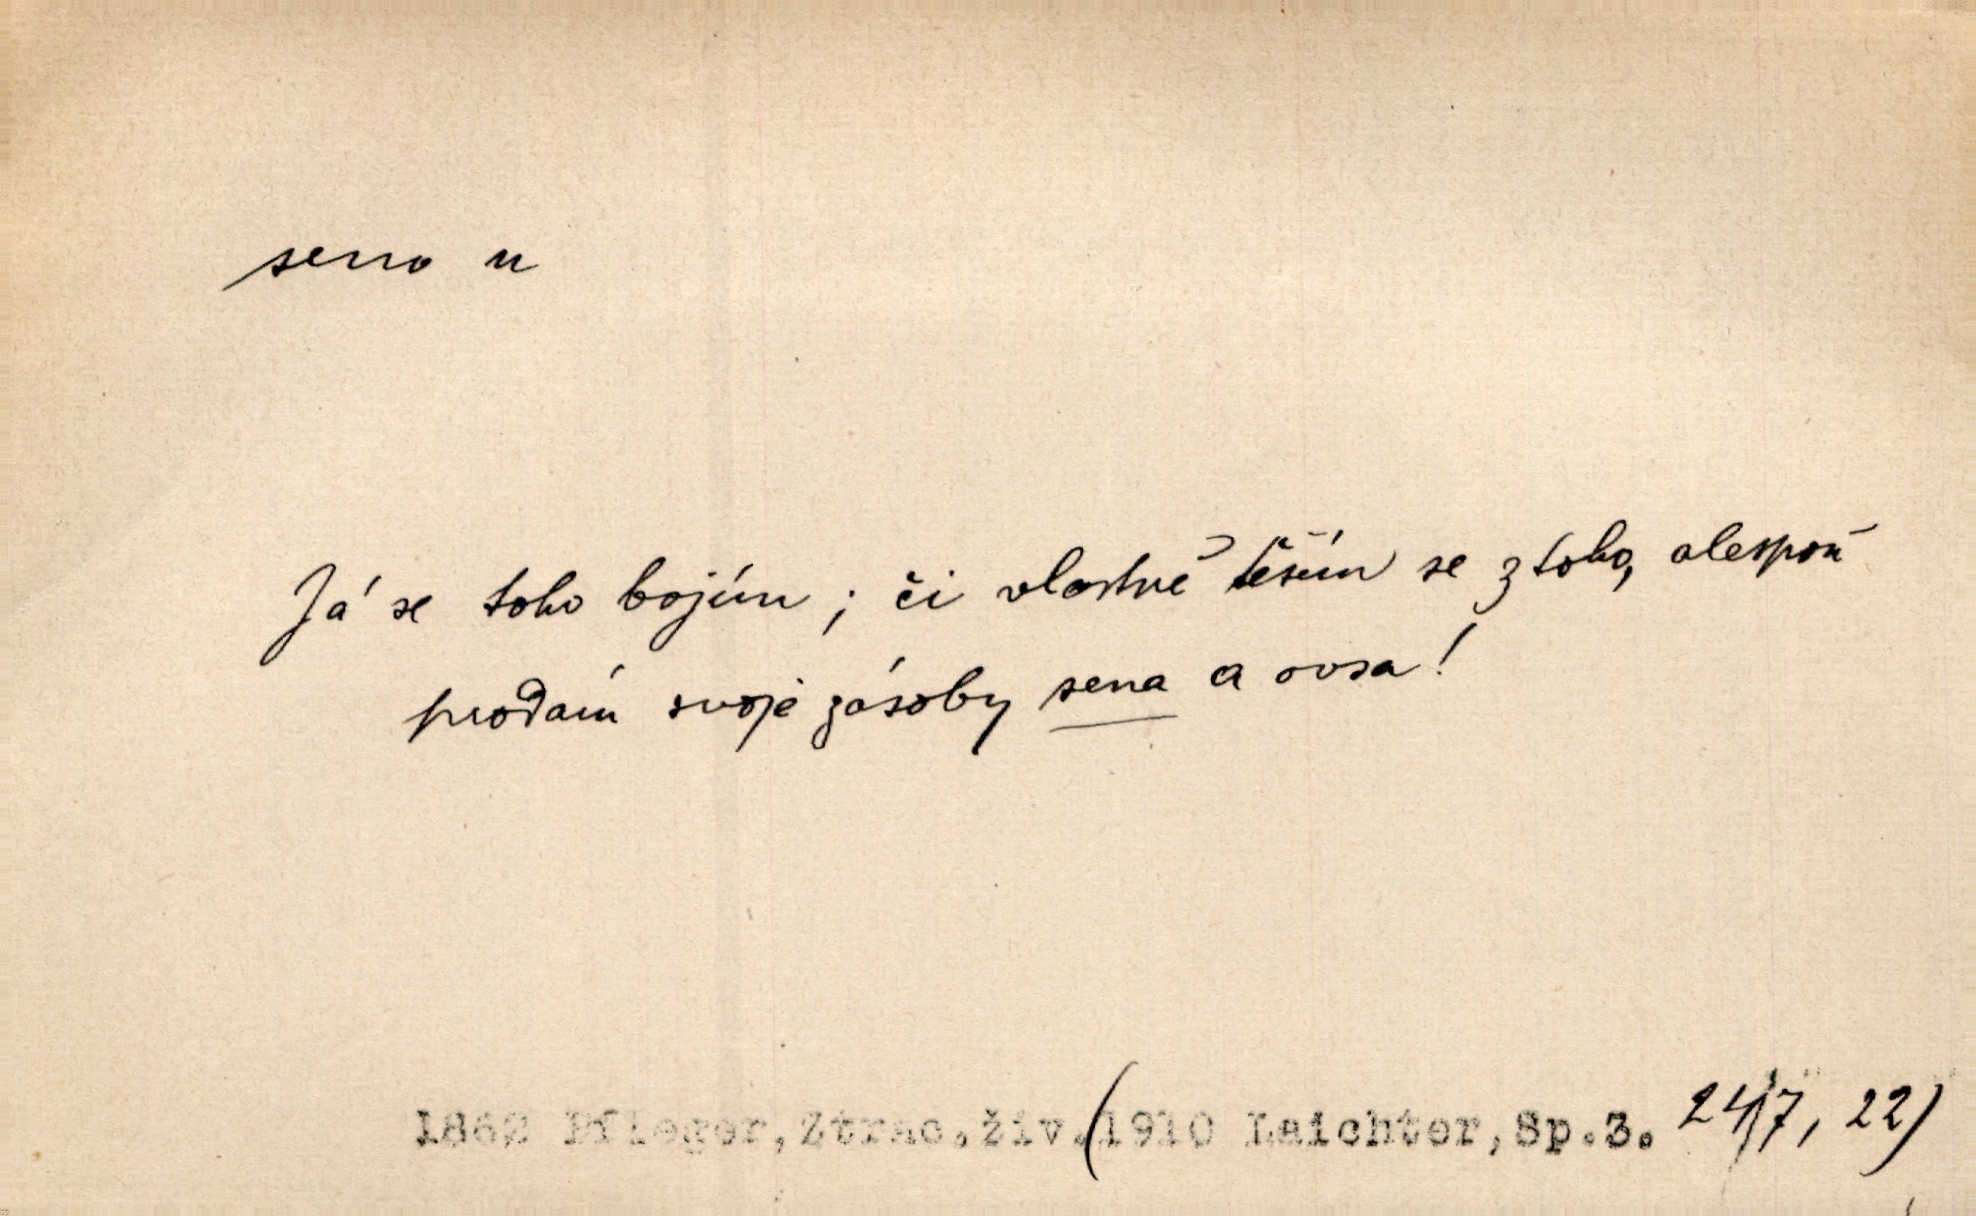 seno n
Já se toho bojím ; či vlastně těším se z toho, alespoň
prodám svoje zásoby sena a ovsa!
1862 Pfleger, Ztrac. živ. (1910 Laichter, Sp. 3. 247, 22)